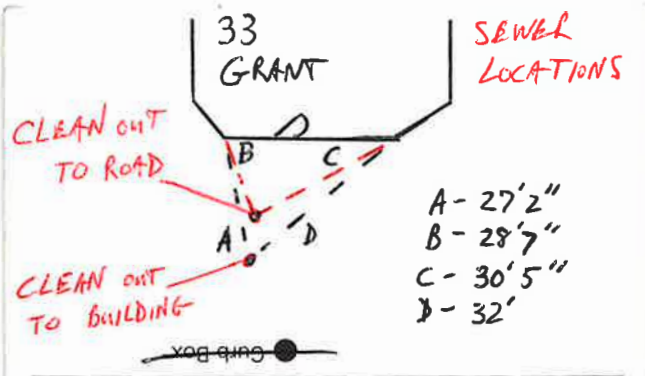 33
GRANT
SEWER
LOCATIONS
CLEAN OUT
TO ROAD
B
C
A
D
CLEAN OUT
TO BUILDING
A - 27'2"
B - 28'7"
C - 30'5"
D - 32'
Curb Box